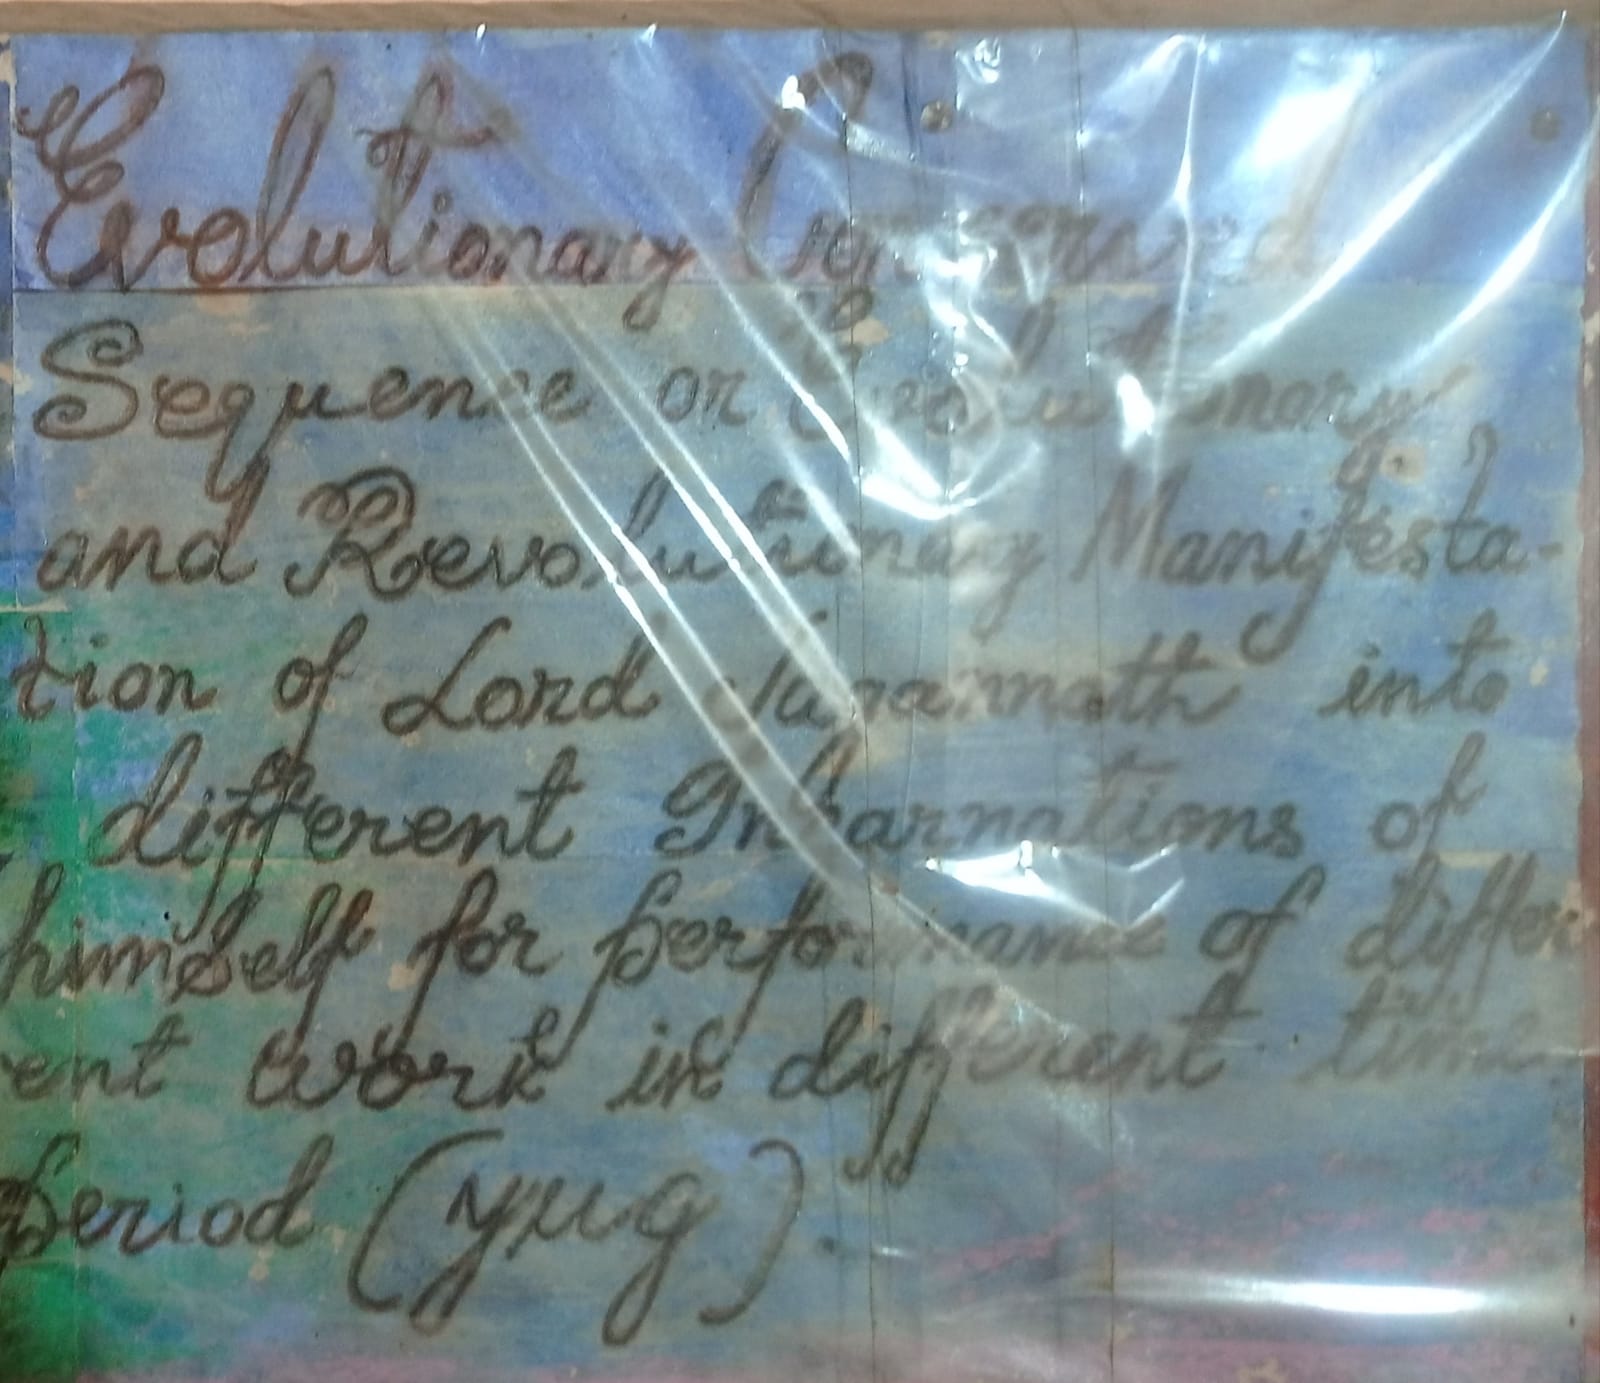 Evolutionary
Sequence or Evolutionary
and Revolutionary Manifesta-
tion of Lord Jagannath into
different Inkarnations of
himself for performance of differ
ent work in different time
period (yug).